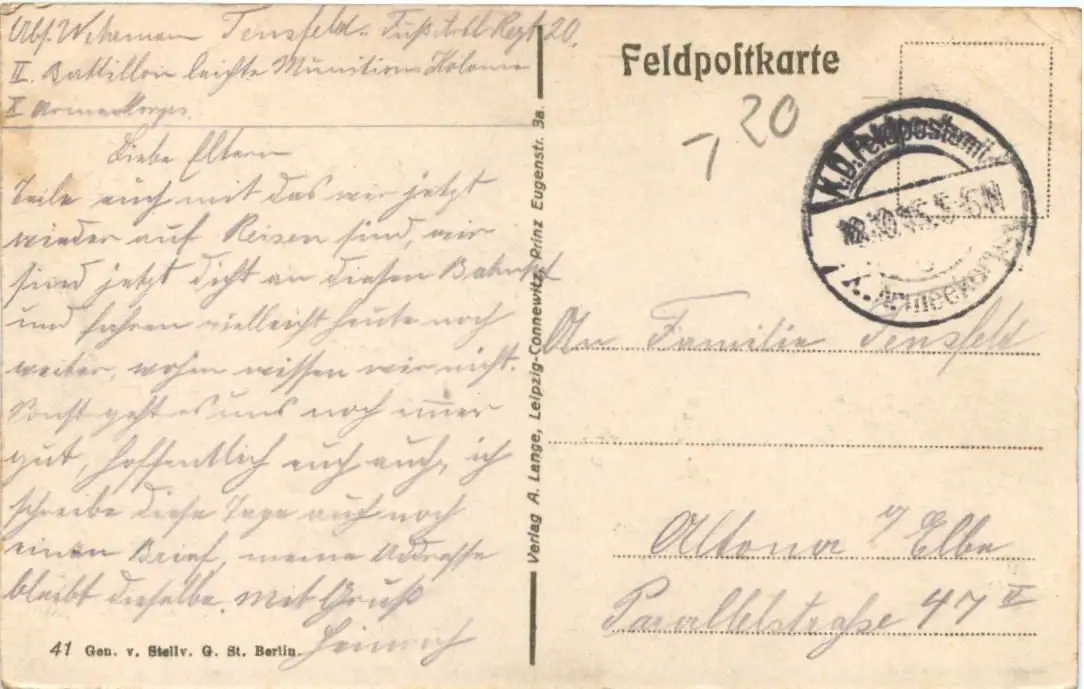 Abs. Wehrman Tensfeld. Fuß Artl Regt 20.
II. Battillon leichte Munitions Kolonne
X Armeekorps.
Liebe Eltern
Teile euch mit das wir jetzt
wieder auf Reisen sind, wir
sind jetzt dicht an diesen Bahnhof
und fahren vielleicht heute noch
weiter, wohin wissen wir nicht.
Sonst geht es uns noch immer
gut, hoffentlich euch auch, ich
schreibe diese Tage auch noch
einen Brief, meine Adresse
bleibt dieselbe. Mit Gruß
Heinrich
41 Gen. v. Stellv. G. St. Berlin.
Verlag A. Lange, Leipzig-Connewitz, Prinz Eugenstr. 3a.
Feldpostkarte
20
K.D. Feldpostamt
10.15.5-6N
X. Armeekorps
An Familie Tensfeld
Altona a/ Elbe
Parallelstraße 47 II